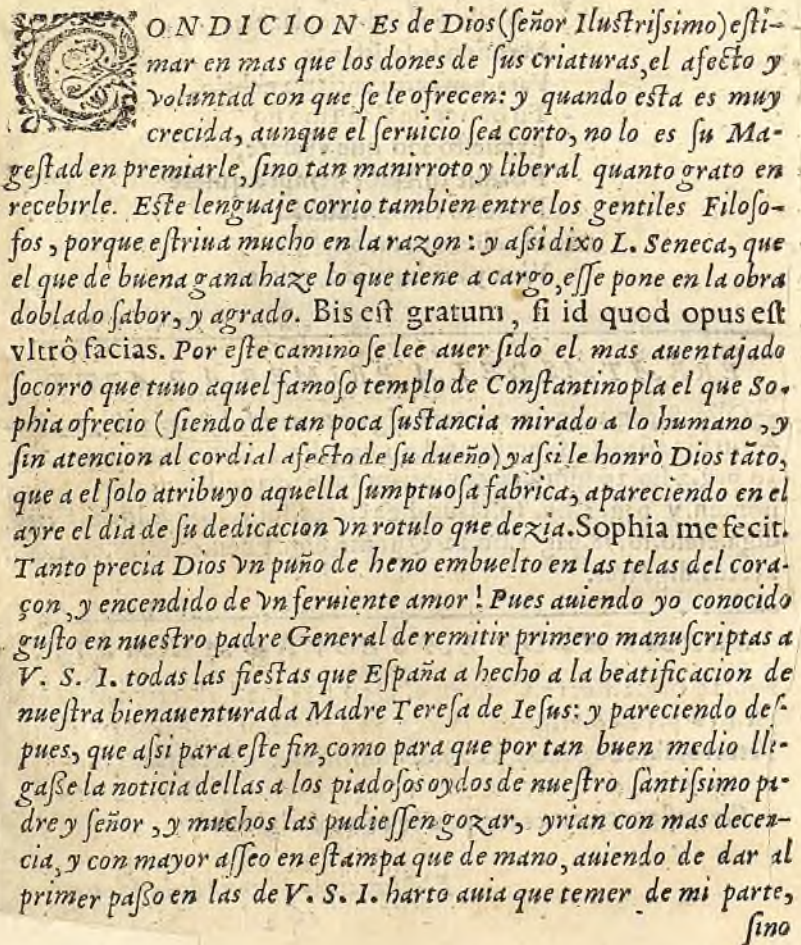 CONDICION Es de Dios (ſeñor Iluſtriſsimo) eſti-
mar en mas que los dones de ſus criaturas, el afecto y
voluntad con que ſe le ofrecen: y quando eſta es muy
crecida, aunque el ſeruicio ſea corto, no lo es ſu Ma-
geſtad en premiarle, ſino tan manirroto y liberal quanto grato en
recebirle. Eſte lenguaje corrio tambien entre los gentiles Filoſo-
fos, porque eſtriua mucho en la razon: y aſsi dixo L. Seneca, que
el que de buena gana haze lo que tiene a cargo, eſſe pone en la obra
doblado ſabor, y agrado. Bis eſt gratum, ſi id quod opus eſt
vltrô facias. Por eſte camino ſe lee auer ſido el mas auentajado
ſocorro que tuuo aquel famoſo templo de Conſtantinopla el que So-
phia ofrecio (ſiendo de tan poca ſuſtancia mirado a lo humano, y
ſin atencion al cordial afecto de ſu dueño) y aſsi le honrò Dios tãto,
que a el ſolo atribuyo aquella ſumptuoſa fabrica, apareciendo en el
ayre el dia de ſu dedicacion vn rotulo que dezia. Sophia me fecit.
Tanto precia Dios vn puño de heno embuelto en las telas del cora-
çon, y encendido de vn feruiente amor! Pues auiendo yo conocido
guſto en nueſtro padre General de remitir primero manuſcriptas a
V. S. I. todas las fieſtas que Eſpaña a hecho a la beatificacion de
nueſtra bienauenturada Madre Tereſa de Ieſus: y pareciendo deſ-
pues, que aſsi para eſte fin, como para que por tan buen medio lle-
gaſſe la noticia dellas a los piadoſos oydos de nueſtro ſantiſsimo pa-
dre y ſeñor, y muchos las pudieſſen gozar, yrian con mas decen-
cia, y con mayor aſſeo en eſtampa que de mano, auiendo de dar al
primer paſſo en las de V. S. I. harto auia que temer de mi parte,
ſino